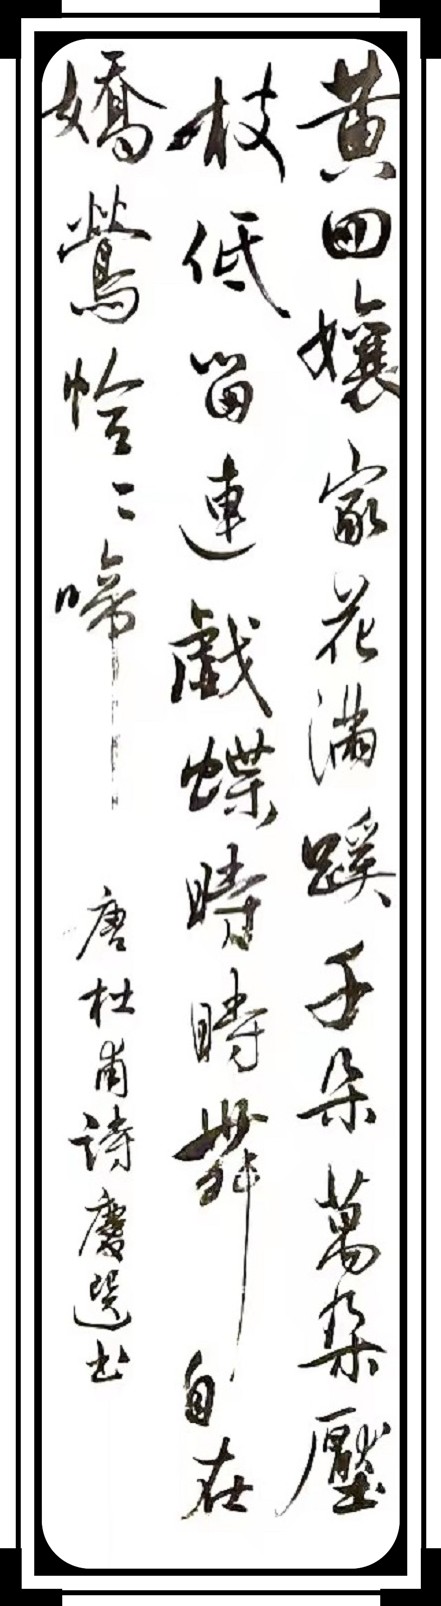 黄四孃家花滿蹊千朵萬朵壓
枝低留連戲蝶時時舞自在
嬌鶯恰〻啼
唐杜甫詩慶選书